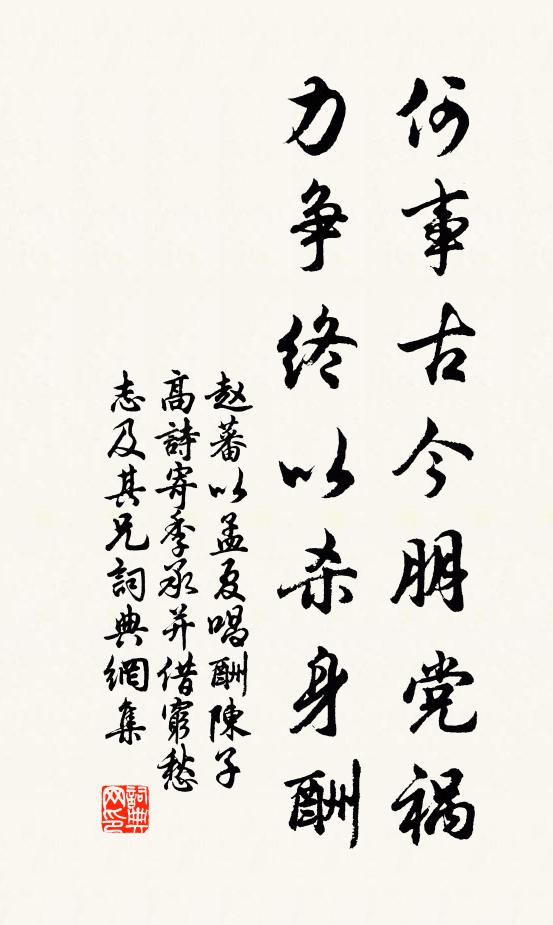 何事古今朋党祸
力争终以杀身酬
赵蕃以孟夏唱酬陳子
高詩寄季承并借窮愁
志及其兄詞典網集
詞典网印